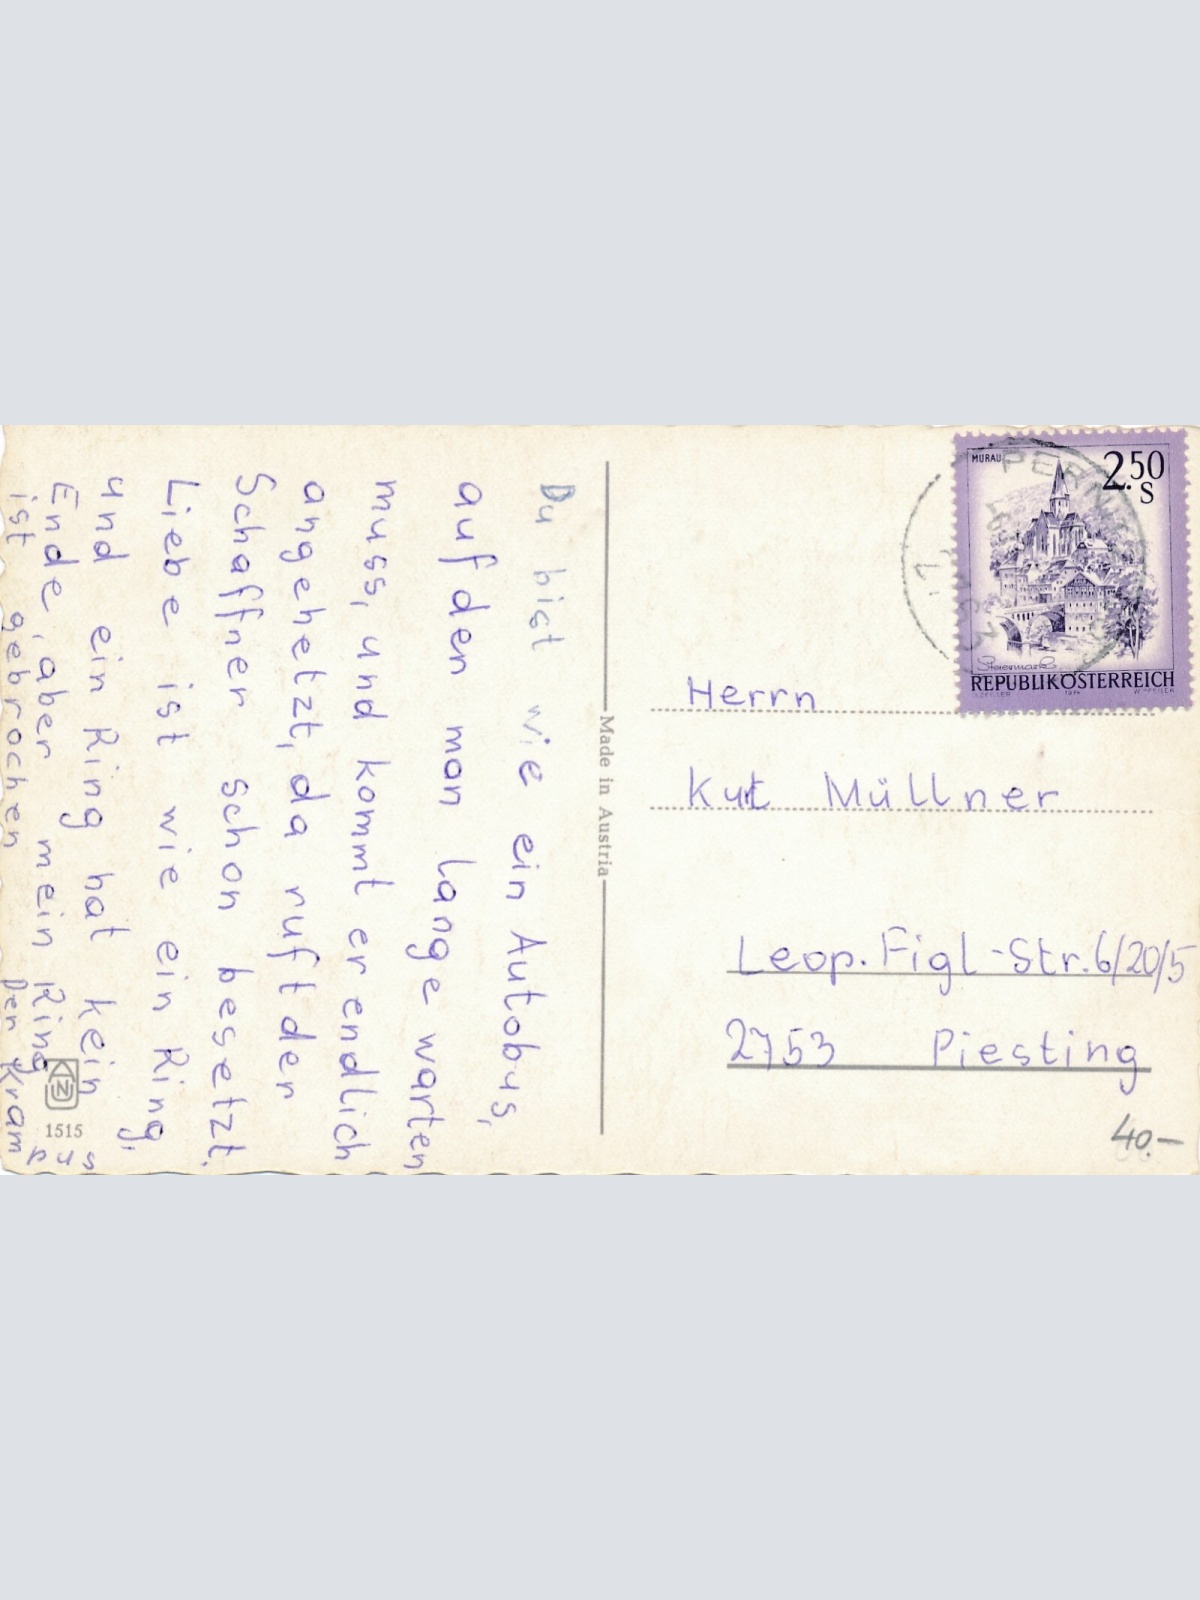 Du bist wie ein Autobus,
auf den man lange warten
muss, und kommt er endlich
angehetzt, da ruft der
Schaffner schon besetzt.
Liebe ist wie ein Ring,
und ein Ring hat kein
Ende, aber mein Ring
ist gebrochen
Der Krampus
1515
Made in Austria
MURAU
2.50
S
Steiermark
REPUBLIK ÖSTERREICH
1974
Herrn
Kut Müllner
Leop. Figl-Str. 6/20/5
2753 Piesting
40.-